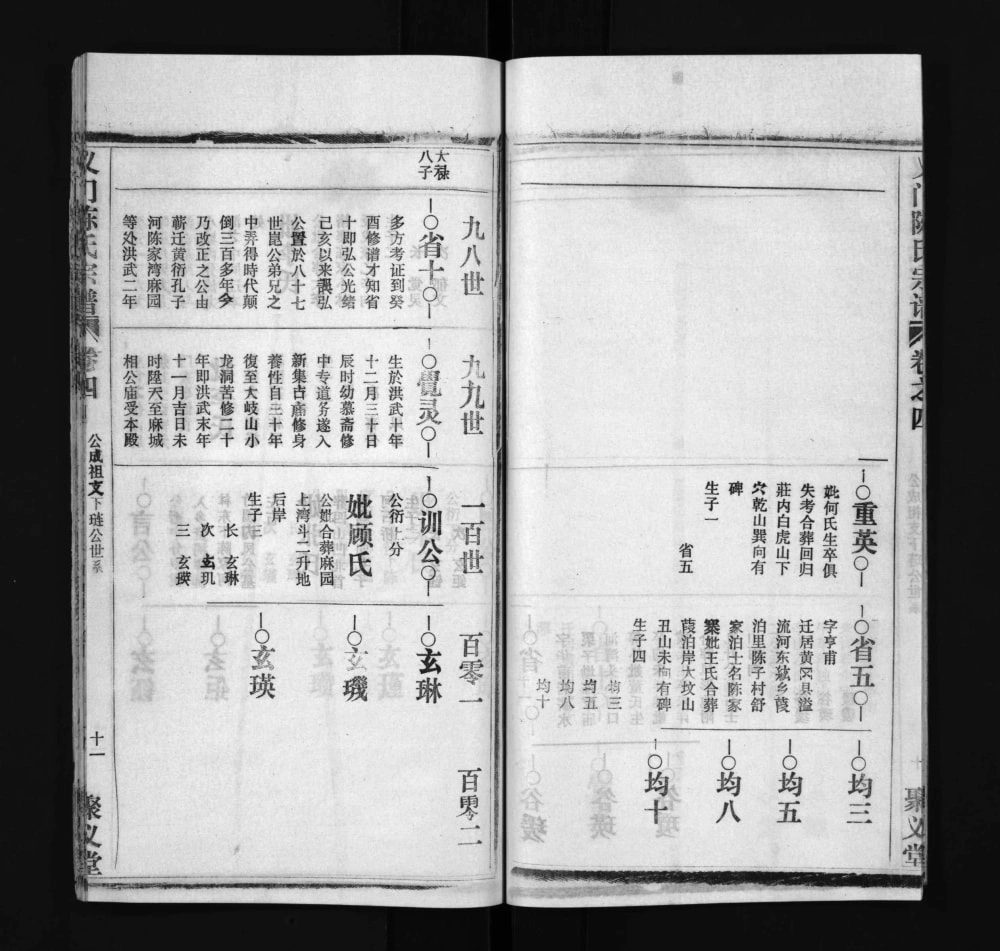 义门陈氏宗谱
卷之四
聚义堂
重英
妣何氏生卒俱
失考合葬回归
莊内白虎山下
穴乾山巽向有
碑
生子一
省五
省五
字亨甫
迁居黄冈具溢
流河东弦乡葭
泊里陈子村舒
家泊士名陈家
寨妣王氏合葬
葭泊岸大坟山
丑山未向有碑
生子四
均三
均五
均八
均十
均三
均五
均八
均十
九八世
九九世
一百世
百零一
百零二
大禄
八子
省十
多方考证到癸
酉修谱才知省
十即弘公光绪
己亥以来袭弘
公置於八十七
世崑公弟兄之
中弄得時代颠
倒三百多年今
乃改正之公由
蕲迁黄衍孔子
河陈家湾麻园
等处洪武二年
覺灵
生於洪武十年
十二月三十日
辰时幼慕斋修
中专道务遂入
新集古庙修身
養性自三十年
復至大岐山小
龙洞苦修二十
年即洪武末年
十一月吉日未
时陞天至麻城
相公庙受本殿
训公
公衍上分
妣顾氏
公妣合葬麻园
上湾斗二升地
后岸
生子三
长 玄琳
次 玄玑
三 玄瑛
玄琳
玄璣
玄瑛
义门陈氏宗谱
卷四
公成祖支下琏公世系
十一
聚义堂